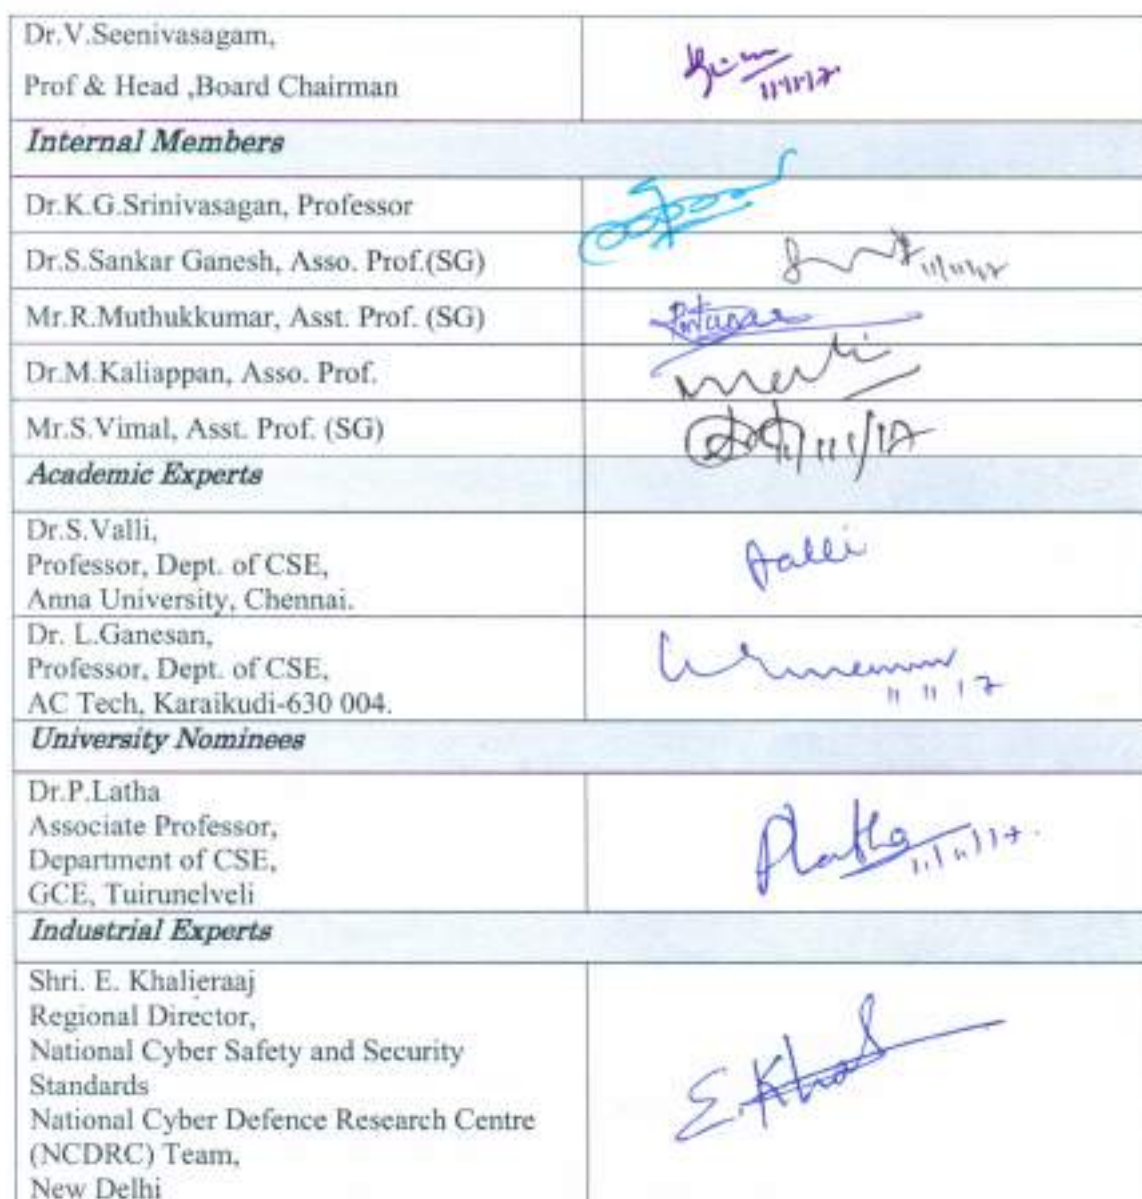 Dr.V.Seenivasagam,
Prof & Head ,Board Chairman
11/11/17
Internal Members
Dr.K.G.Srinivasagan, Professor
Dr.S.Sankar Ganesh, Asso. Prof.(SG)
11/11/17
Mr.R.Muthukkumar, Asst. Prof. (SG)
Dr.M.Kaliappan, Asso. Prof.
Mr.S.Vimal, Asst. Prof. (SG)
11/11/17
Academic Experts
Dr.S.Valli,
Professor, Dept. of CSE,
Anna University, Chennai.
Valli
Dr. L.Ganesan,
Professor, Dept. of CSE,
AC Tech, Karaikudi-630 004.
11 11 17
University Nominees
Dr.P.Latha
Associate Professor,
Department of CSE,
GCE, Tuirunelveli
PLatha 11/11/17.
Industrial Experts
Shri. E. Khalieraaj
Regional Director,
National Cyber Safety and Security
Standards
National Cyber Defence Research Centre
(NCDRC) Team,
New Delhi